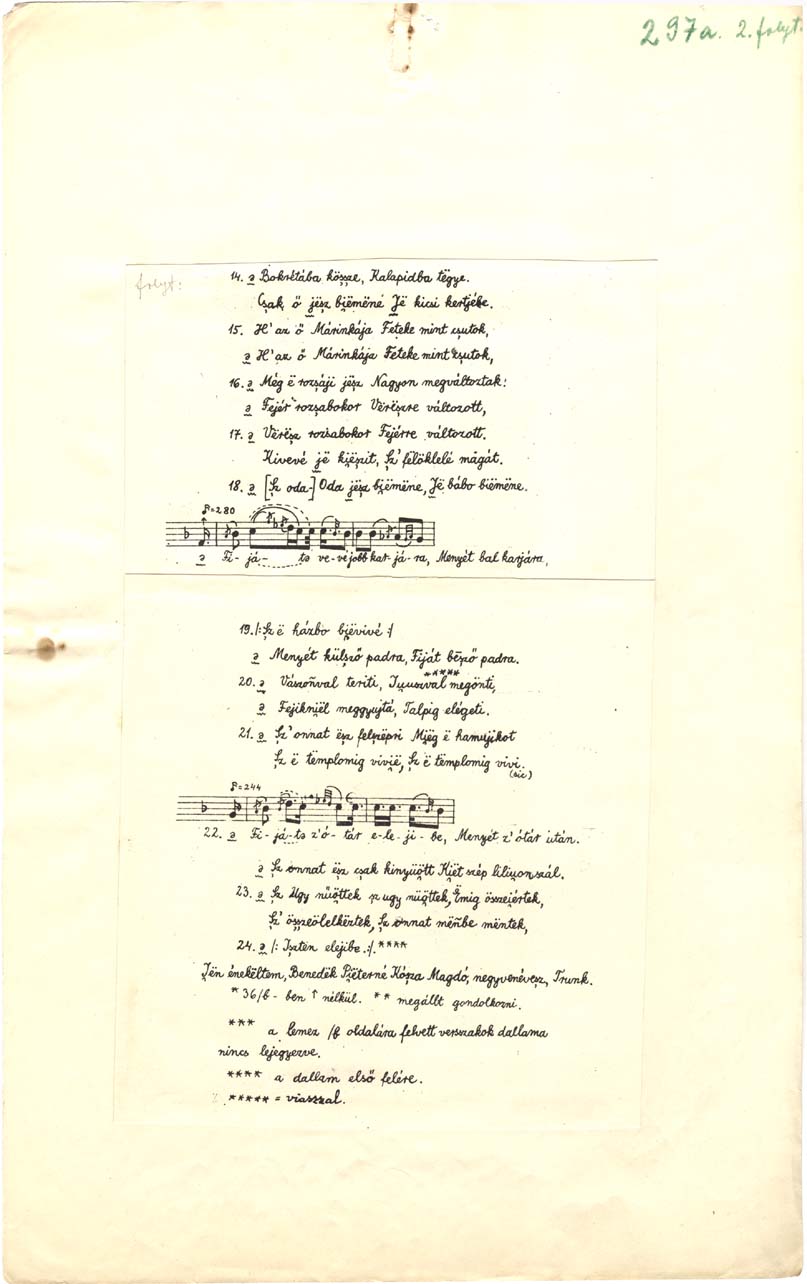 297a. 2. folyt.
folyt:
14. ə Bokrétába kösze, Kalapidba tëgye.
Csak ő jësz biëmëné Jë kicsi kertjébe.
15. H' az ő Márinkája Feteke mint csutok,
ə H'az ő Márinkája Feteke mint csutok,
16. ə Még ë rozsáji jësz Nagyon megváltoztak:
ə Fejér rozsabokor Vërëszre változott,
17. ə Vërësz rozsabokor Fejérre változott.
Kivevé jë kiëszit, Sz' felöklelé magát.
18. ə [Sz oda-] Oda jësz biëmëne, Jë bábo biëmëne.
♪=280
ə Fi- já- tə ve-vé jobb kar- já- ra, Menyét bal karjára,
19. /: Sz ë házbo biëvivé :/
ə Menyét külsző padra, Fiját bëszö padra.
20. ə Vászonval teriti, *****megönti,
ə Fejikniël meggyujtá, Talpig elégeti.
21. ə Sz'onnat ësz felszëpri Miëg ë hamujikot
Sz ë tëmplomig vivië, Sz ë tëmplomig vivi.
(sic)
♪=244
22. ə Fi- já-tə z'ó- tár e-le- ji- be, Menyét z'ótár után.
ə Sz onnat ësz csak kinyüött Kiët szép liliyonszál.
23. ə Sz Ugy nüöttek sz ugy nüöttek, Ëmig összeiértek,
Sz' összeölelkëztek, Sz onnat mënbe mëntek,
24. ə /: Isztën elejibe :/. ****
Jën énekëltem, Benedëk Piëterné Kósza Magdó, negyvenévesz, Trunk.
* 36/b - ben ↑ nélkül. ** megállt gondolkozni.
*** a lemez /b oldalára felvett versszakok dallama
nincs lejegyezve.
**** a dallam első felére.
***** = viasszal.